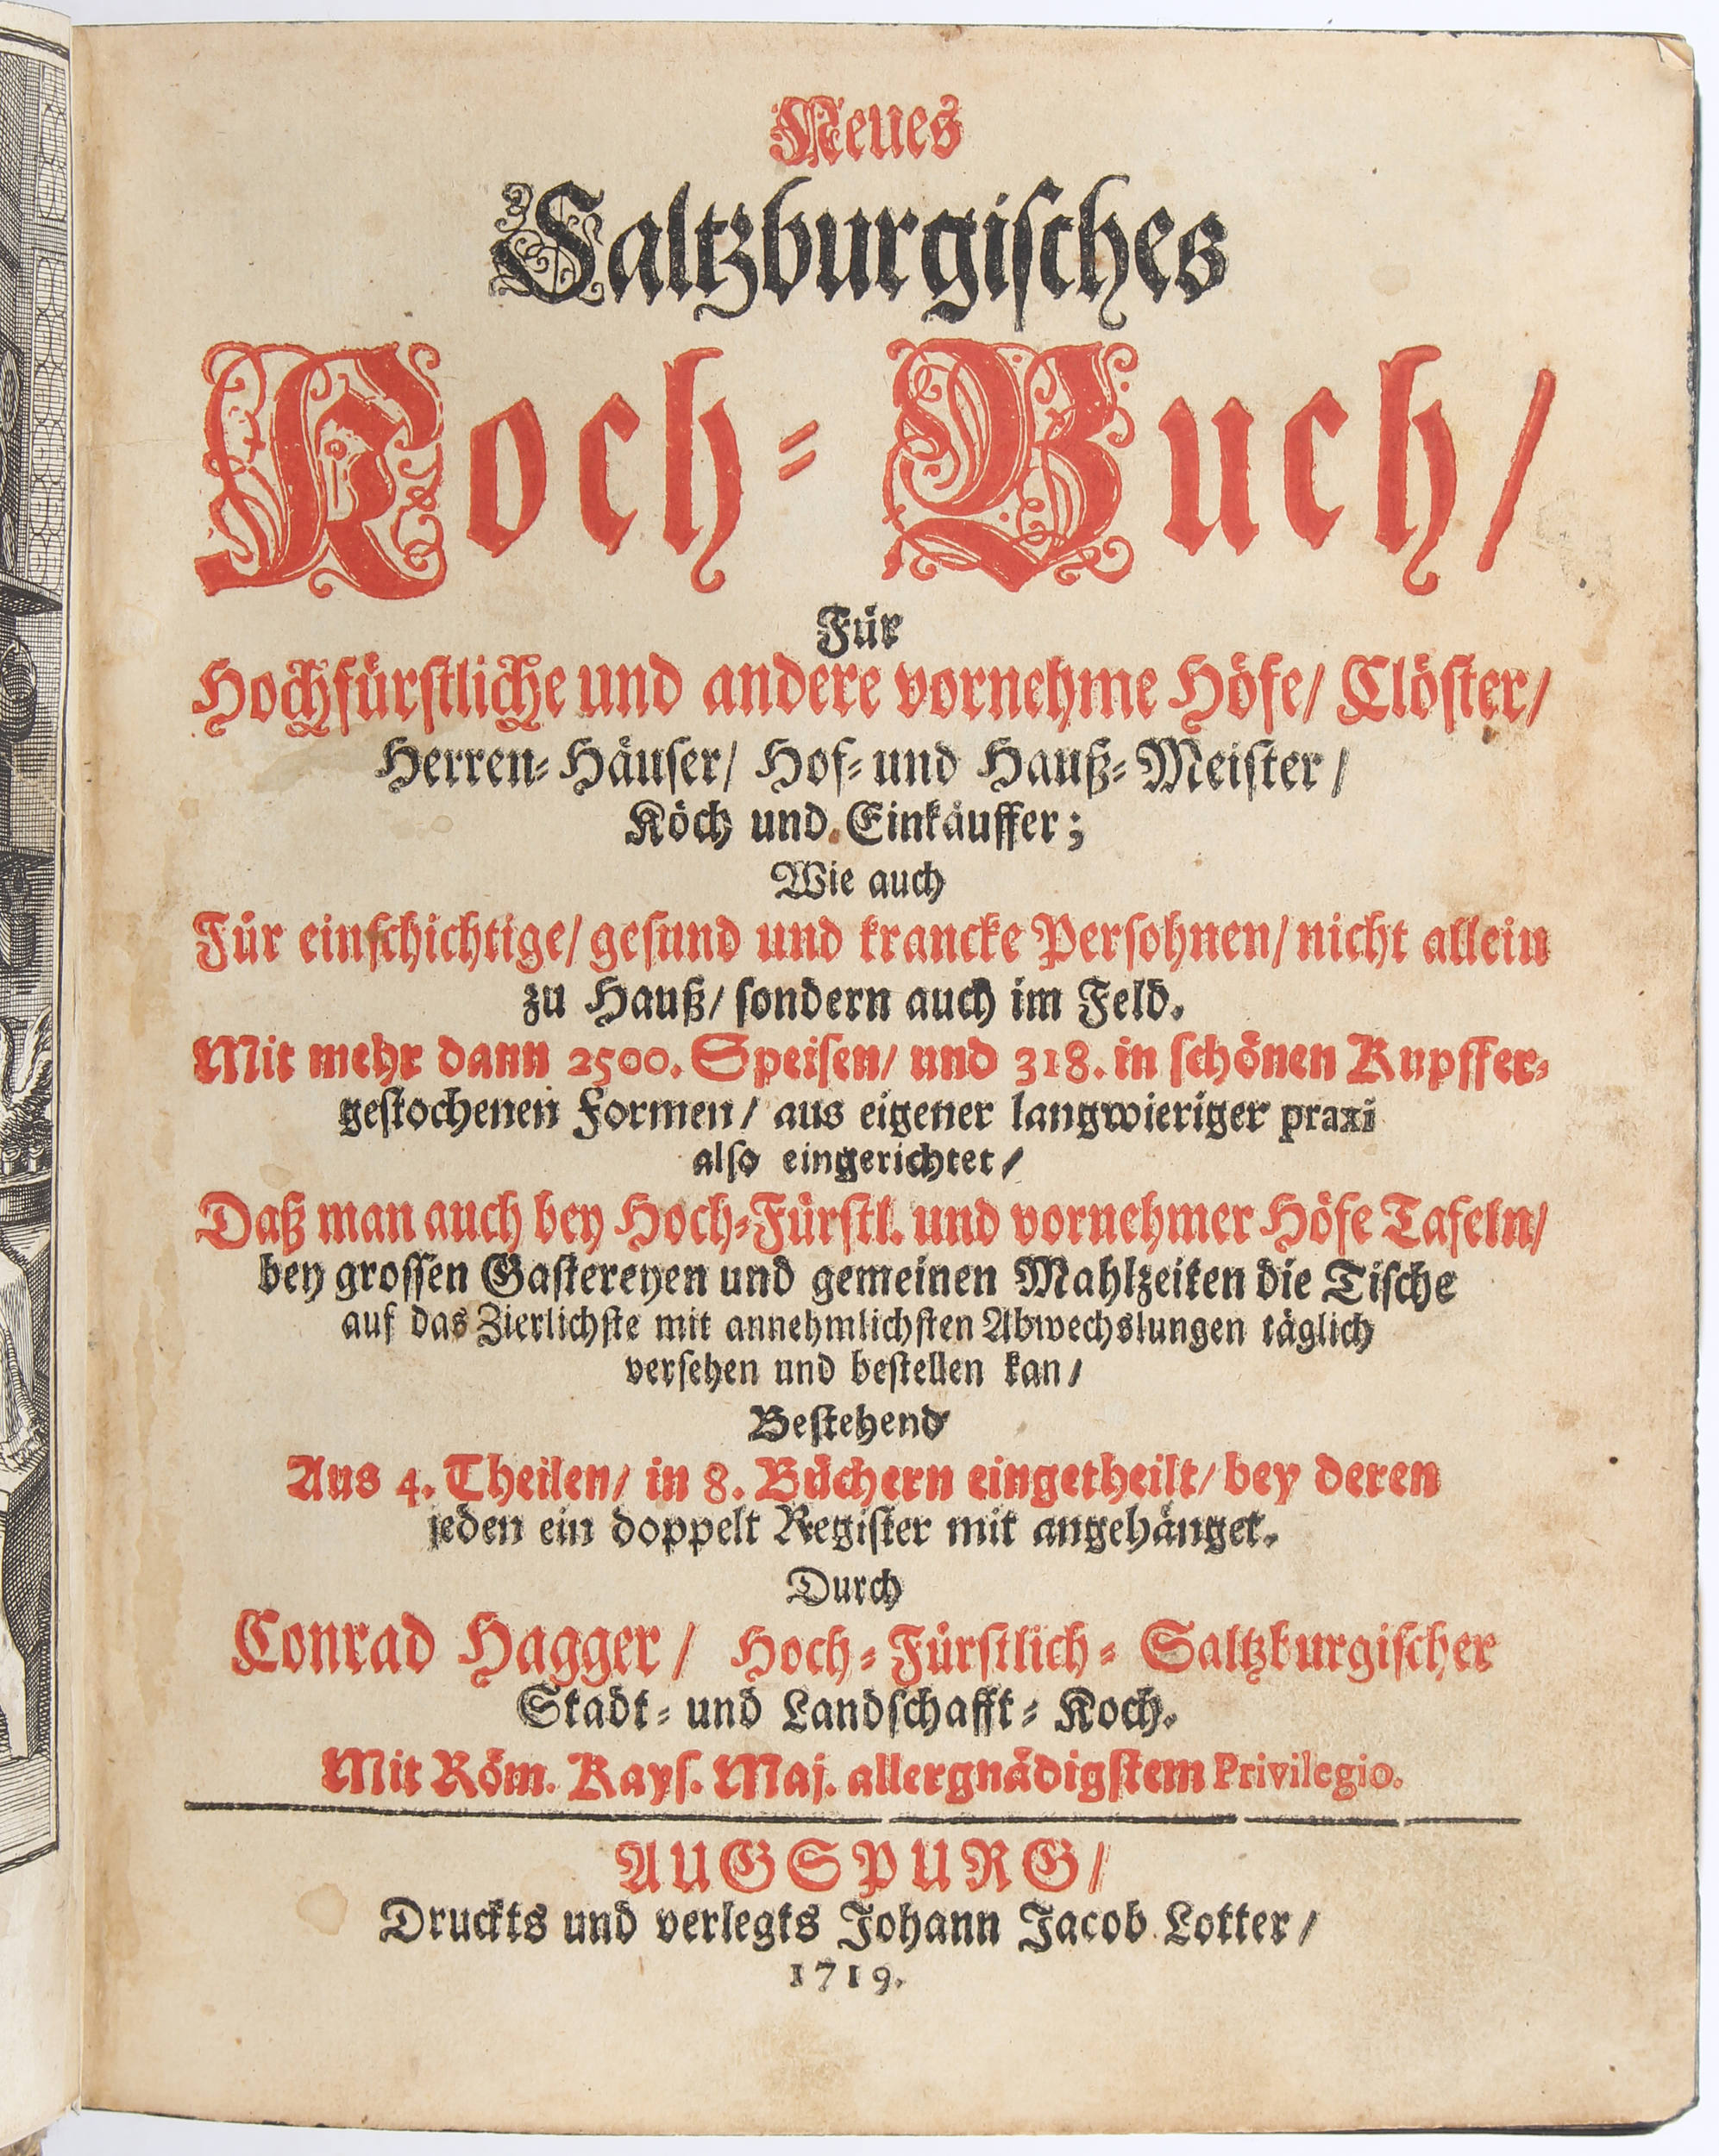 Neues
Saltzburgisches
Koch-Buch/
Für
Hochfürstliche und andere vornehme Höfe/ Clöster/
Herren-Häuser/ Hof-und Hauß-Meister/
Köch und Einkäuffer;
Wie auch
Für einschichtige/ gesund und krancke Persohnen/ nicht allein
zu Hauß/ sondern auch im Feld.
Mit mehr dann 2500. Speisen/ und 318. in schönen Kupffer-
gestochenen Formen/ aus eigener langwieriger praxi
also eingerichtet/
Daß man auch bey Hoch-Fürstl. und vornehmer Höfe Tafeln/
bey grossen Gastereyen und gemeinen Mahlzeiten die Tische
auf das Zierlichste mit annehmlichsten Abwechslungen täglich
versehen und bestellen kan/
Bestehend
Aus 4. Theilen/ in 8. Büchern eingetheilt/ bey deren
jeden ein doppelt Register mit angehänget.
Durch
Conrad Hagger/ Hoch-Fürstlich-Saltzburgischer
Stadt- und Landschafft-Koch.
Mit Röm. Kays. Maj. allergnädigstem Privilegio.
AUGSPURG/
Druckts und verlegts Johann Jacob Lotter/
1719.